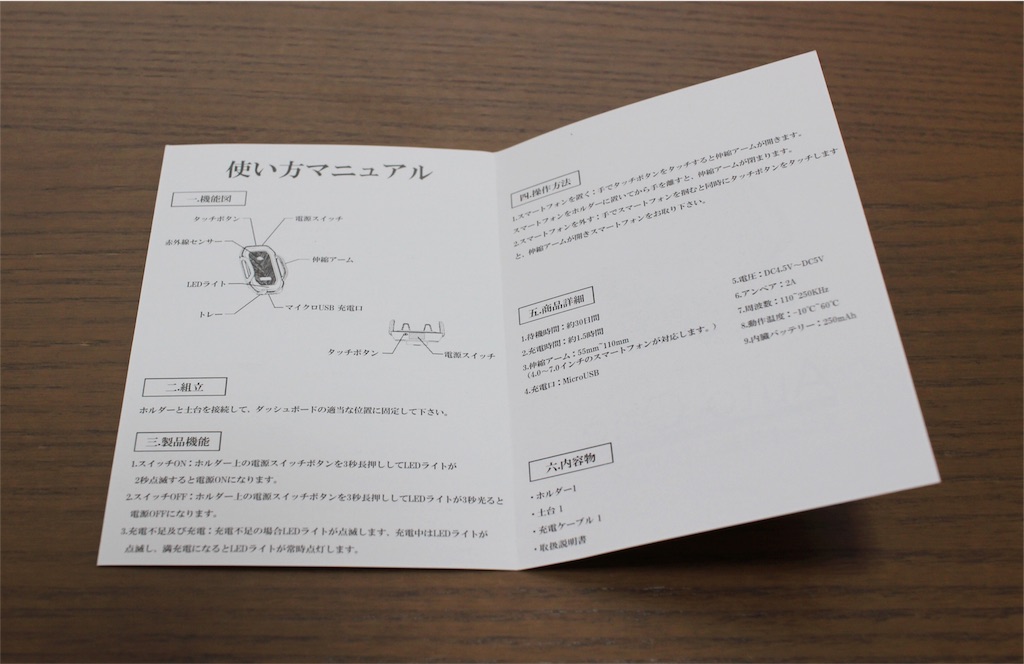 使い方マニュアル
一.機能図
タッチボタン
電源スイッチ
赤外線センサー
伸縮アーム
LEDライト
トレー
マイクロUSB 充電口
タッチボタン
電源スイッチ
二.組立
ホルダーと土台を接続して、ダッシュボードの適当な位置に固定して下さい。
三.製品機能
1.スイッチON：ホルダー上の電源スイッチボタンを3秒長押ししてLEDライトが
2秒点滅すると電源ONになります。
2.スイッチOFF：ホルダー上の電源スイッチボタンを3秒長押ししてLEDライトが3秒光ると
電源OFFになります。
3.充電不足及び充電：充電不足の場合LEDライトが点滅します、充電中はLEDライトが
点滅し、満充電になるとLEDライトが常時点灯します。
四.操作方法
1.スマートフォンを置く：手でタッチボタンをタッチすると伸縮アームが開きます。
スマートフォンをホルダーに置いてから手を離すと、伸縮アームが閉まります。
2.スマートフォンを外す：手でスマートフォンを掴むと同時にタッチボタンをタッチします
と、伸縮アームが開きスマートフォンをお取り下さい。
五.商品詳細
1.待機時間：約30日間
2.充電時間：約1.5時間
3.伸縮アーム：55mm~110mm
（4.0～7.0インチのスマートフォンが対応します。）
4.充電口：MicroUSB
5.電圧：DC4.5V～DC5V
6.アンペア：2A
7.周波数：110~250KHz
8.動作温度：-10℃~60℃
9.内臓バッテリー：250mAh
六.内容物
・ホルダー1
・土台 1
・充電ケーブル 1
・取扱説明書